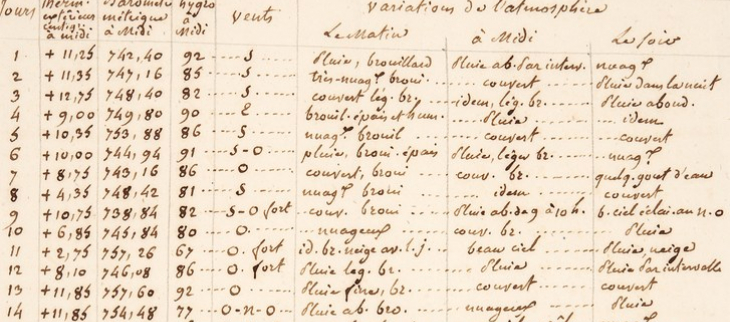 Jours Therm. extérieur centigr. à midi Baromètre métrique à Midi hygro à Midi Vents Variations de l'atmosphère
Le Matin à Midi Le Soir
1 +11,25 742,40 92 S Pluie, brouillard Pluie ab. par interv. nuag.x
2 +11,35 747,16 85 S très-nuag.x broui couvert Pluie dans la nuit
3 +12,75 748,40 82 S couvert lég. br. idem, lég. br. Pluie abond.
4 +9,00 749,80 90 E brouil. épais et hum. Pluie idem
5 +10,35 753,88 86 S nuag.x brouil couvert couvert
6 +10,00 744,94 91 S-O pluie, broui. épais Pluie, léger br. nuag.x
7 +8,75 743,16 86 O couvert, broui couv. br. quelq. gout. d'eau
8 +4,35 748,42 81 S nuag.x broui idem couvert
9 +10,75 738,84 82 S-O fort couv. broui Pluie ab. de 9 à 10 h. b. ciel éclai. au n.o
10 +6,85 745,84 80 O nuageux couv. br. Pluie
11 +2,75 757,26 67 O. fort id. br. neige av. l. j. beau ciel Pluie, neige
12 +8,10 746,08 86 O. fort Pluie lég. br. Pluie Pluie par intervalle
13 +11,85 757,60 92 O Pluie fine, br. couvert couvert
14 +11,85 754,48 77 O-n-O Pluie ab. bro. nuageux Pluie